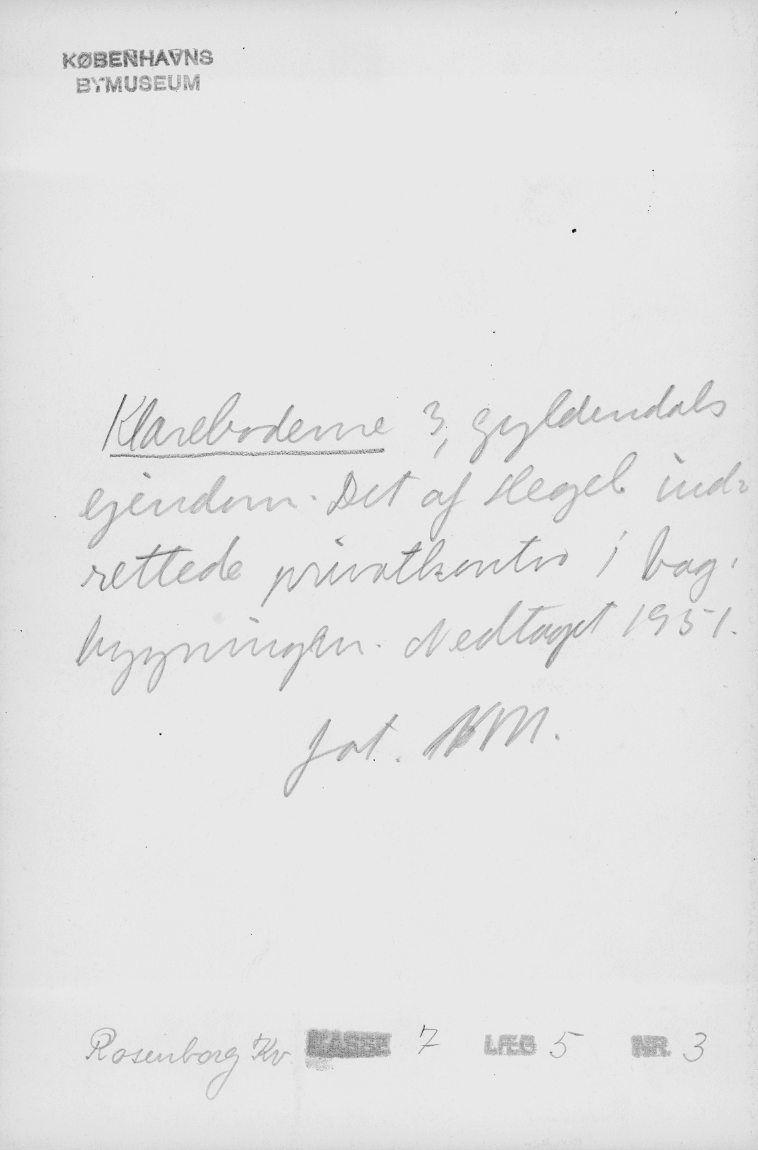 KØBENHAVNS
BYMUSEUM
Klareboderne 3, gyldendals
ejendom. Det af Hegel ind-
rettede privatkontor i bag-
bygningen. Nedtaget 1951.
fot. KM.
Rosenborg Kv. KASSE 7 LÆG 5 NR. 3